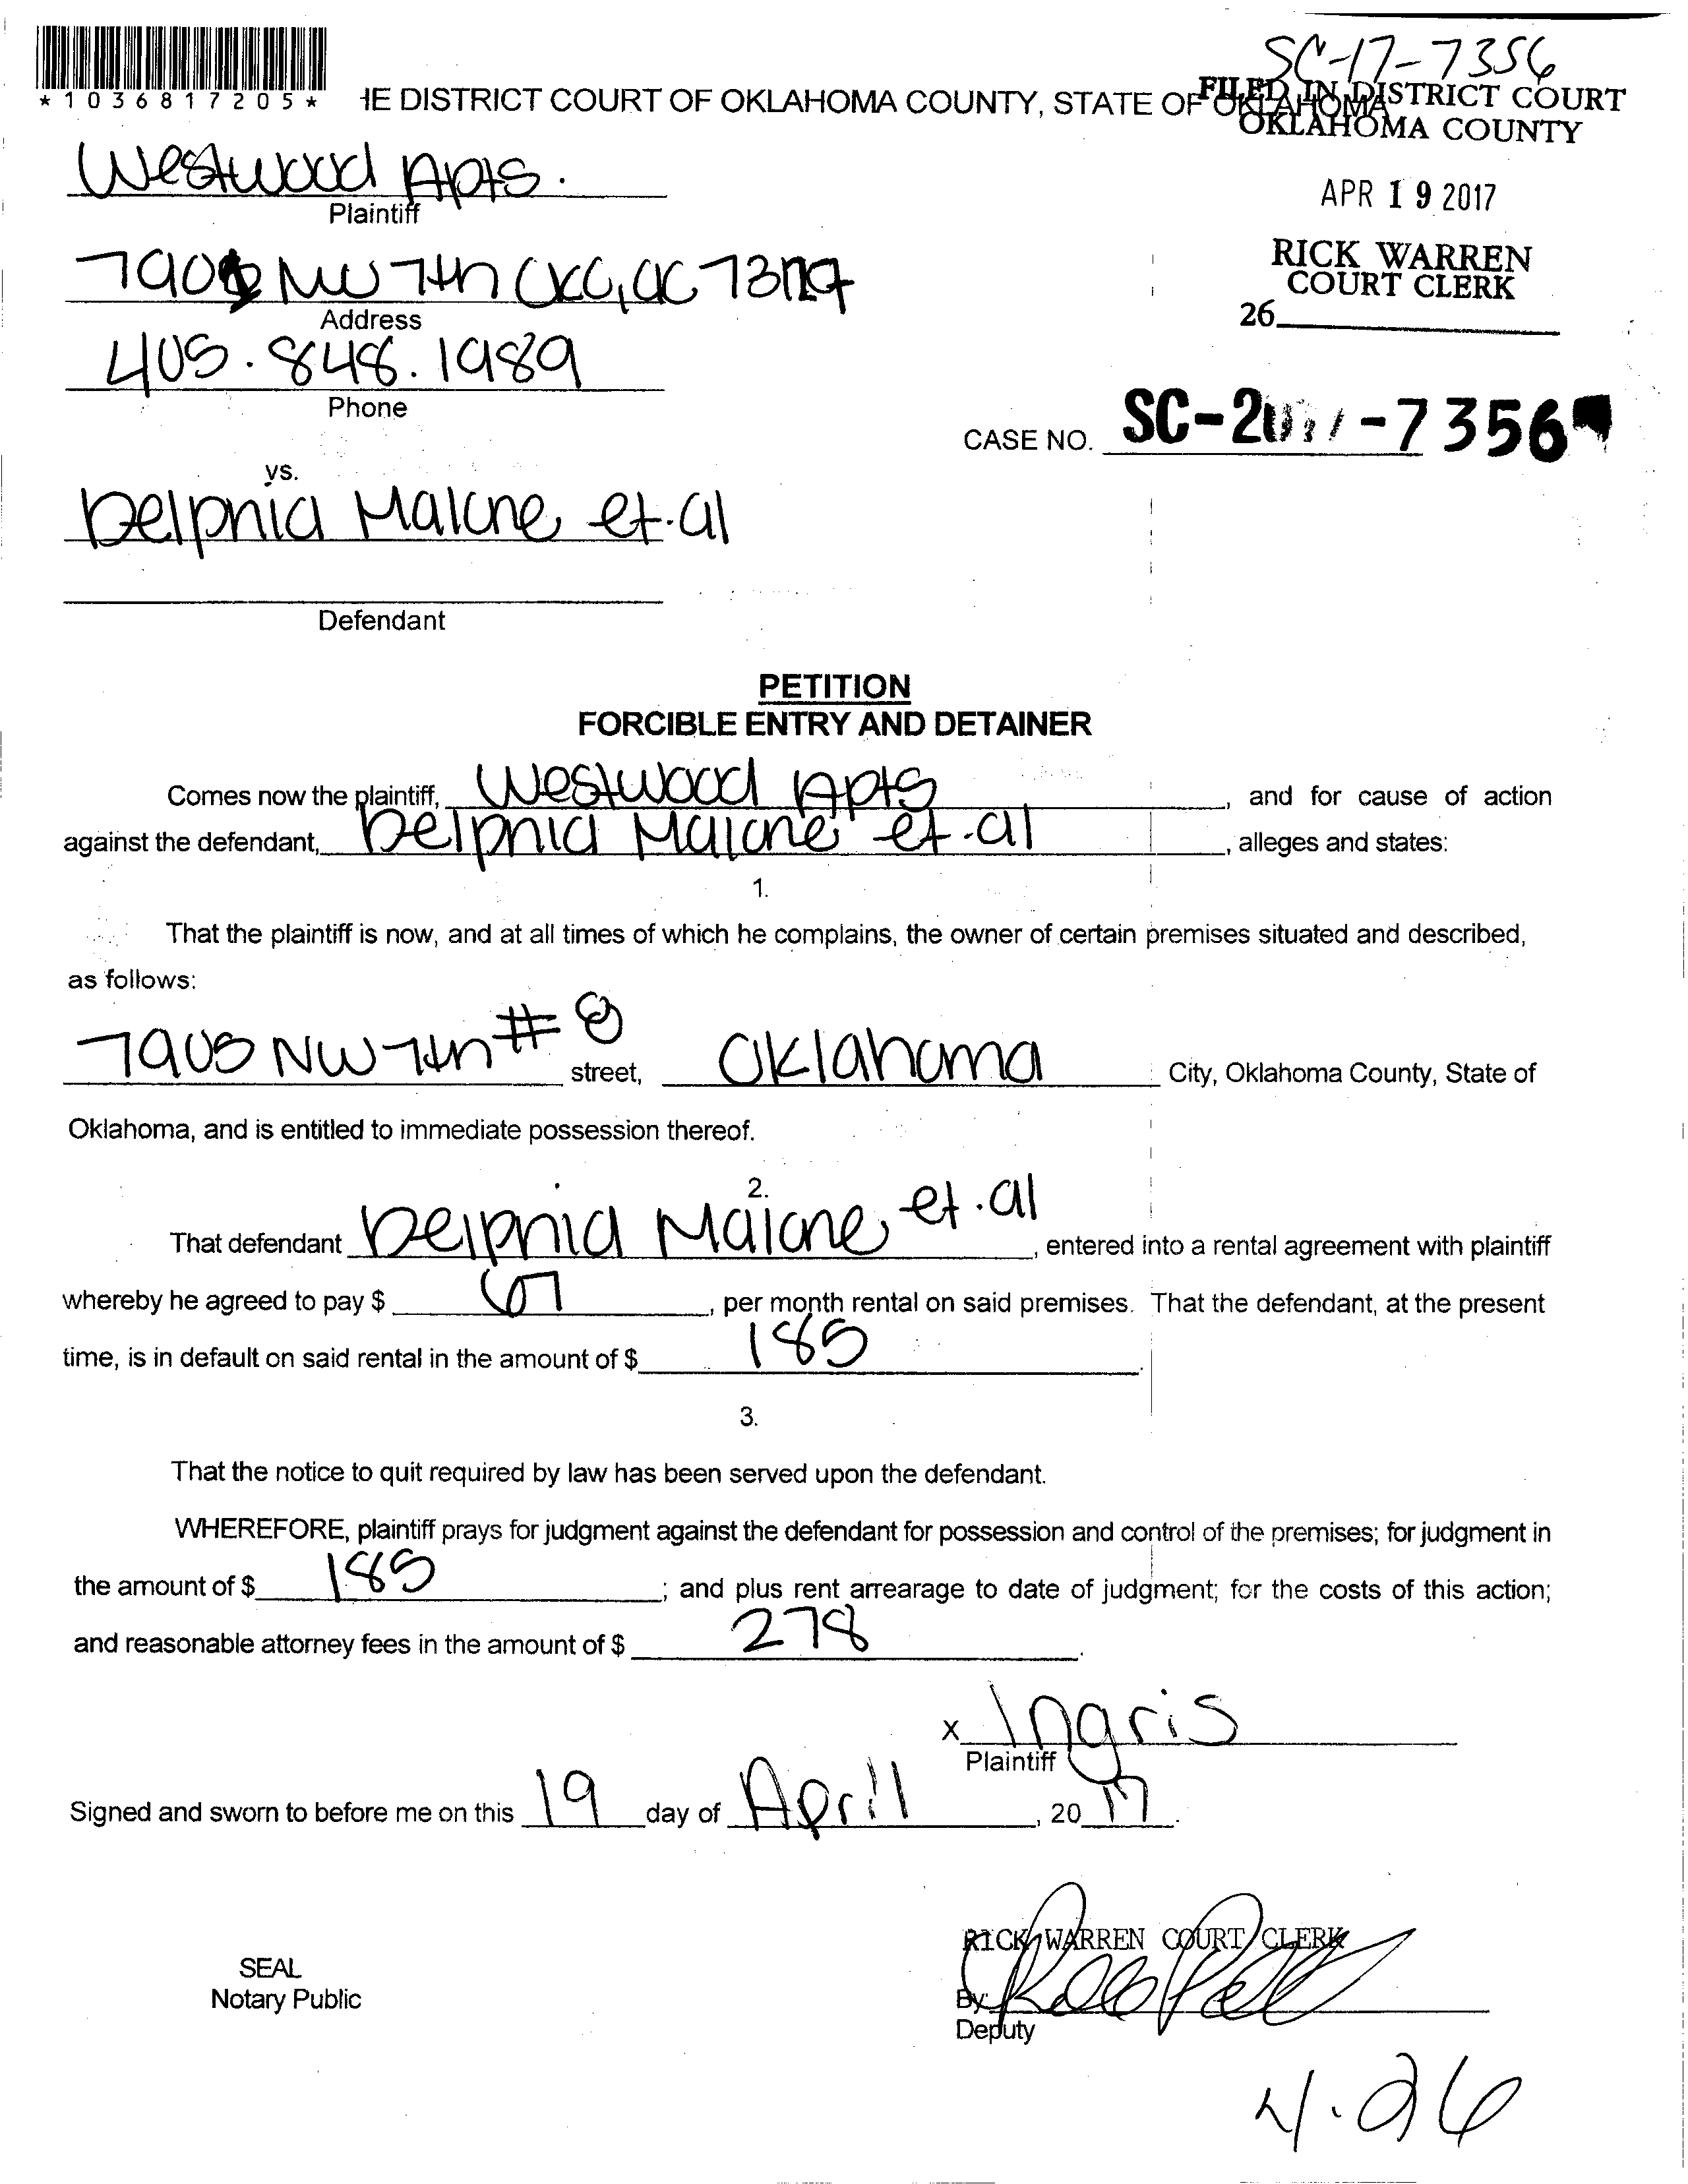 SC-17-7356
*1036817205*
HE DISTRICT COURT OF OKLAHOMA COUNTY, STATE OF OKLAHOMA
FILED IN DISTRICT COURT
OKLAHOMA COUNTY
Westwood Apts.
Plaintiff
APR 19 2017
RICK WARREN
COURT CLERK
26
NW 7th OKC, OK
Address
405.848.1989
Phone
CASE NO. SC-2017-7356
vs.
Delphia Malone et.al
Defendant
PETITION
FORCIBLE ENTRY AND DETAINER
Comes now the plaintiff, Westwood Apts, and for cause of action
against the defendant, Delphia Malone et.al, alleges and states:
1.
That the plaintiff is now, and at all times of which he complains, the owner of certain premises situated and described,
as follows:
7905 NW 7th #8 street, Oklahoma City, Oklahoma County, State of
Oklahoma, and is entitled to immediate possession thereof.
2.
That defendant Delphia Malone, et.al, entered into a rental agreement with plaintiff
whereby he agreed to pay $ 67, per month rental on said premises. That the defendant, at the present
time, is in default on said rental in the amount of $ 185.
3.
That the notice to quit required by law has been served upon the defendant.
WHEREFORE, plaintiff prays for judgment against the defendant for possession and control of the premises; for judgment in
the amount of $ 185; and plus rent arrearage to date of judgment; for the costs of this action;
and reasonable attorney fees in the amount of $ 278.
X Ingris
Plaintiff
Signed and sworn to before me on this 19 day of April, 2017.
RICK WARREN COURT CLERK
SEAL
Notary Public
By:
Deputy
4.26